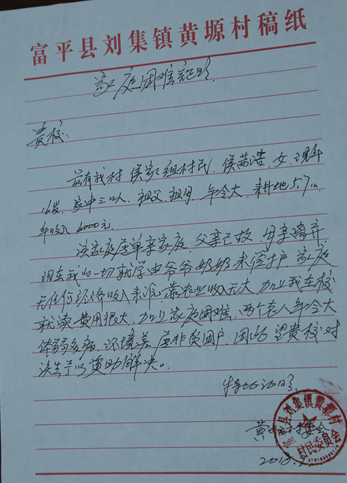 富平县刘集镇黄塬村稿纸
家庭困难证明
贵校：
兹有我村侯家组村民，侯茜浩，女，现年
16岁，家中三口人，祖父、祖母，年令大，耕地5.7亩
年收入6000元。
该家庭单亲家庭，父亲已故，母亲离弃
现在我的一切就学由爷爷奶奶来维护，家庭
无任何经济收入来源，靠农业收入无大，加上我在校
就读费用很大，加上家庭困难，两个老人年令大
体弱多病，环境差，属非贫困户，因此望贵校对
该生予以资助解决。
特此证明
黄塬村委会